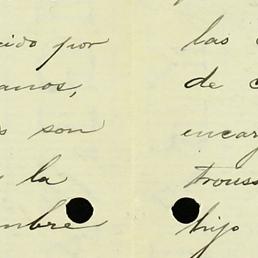 cido por
anos,
s son
y la
mbre
las
de
encar
trouss
hijo